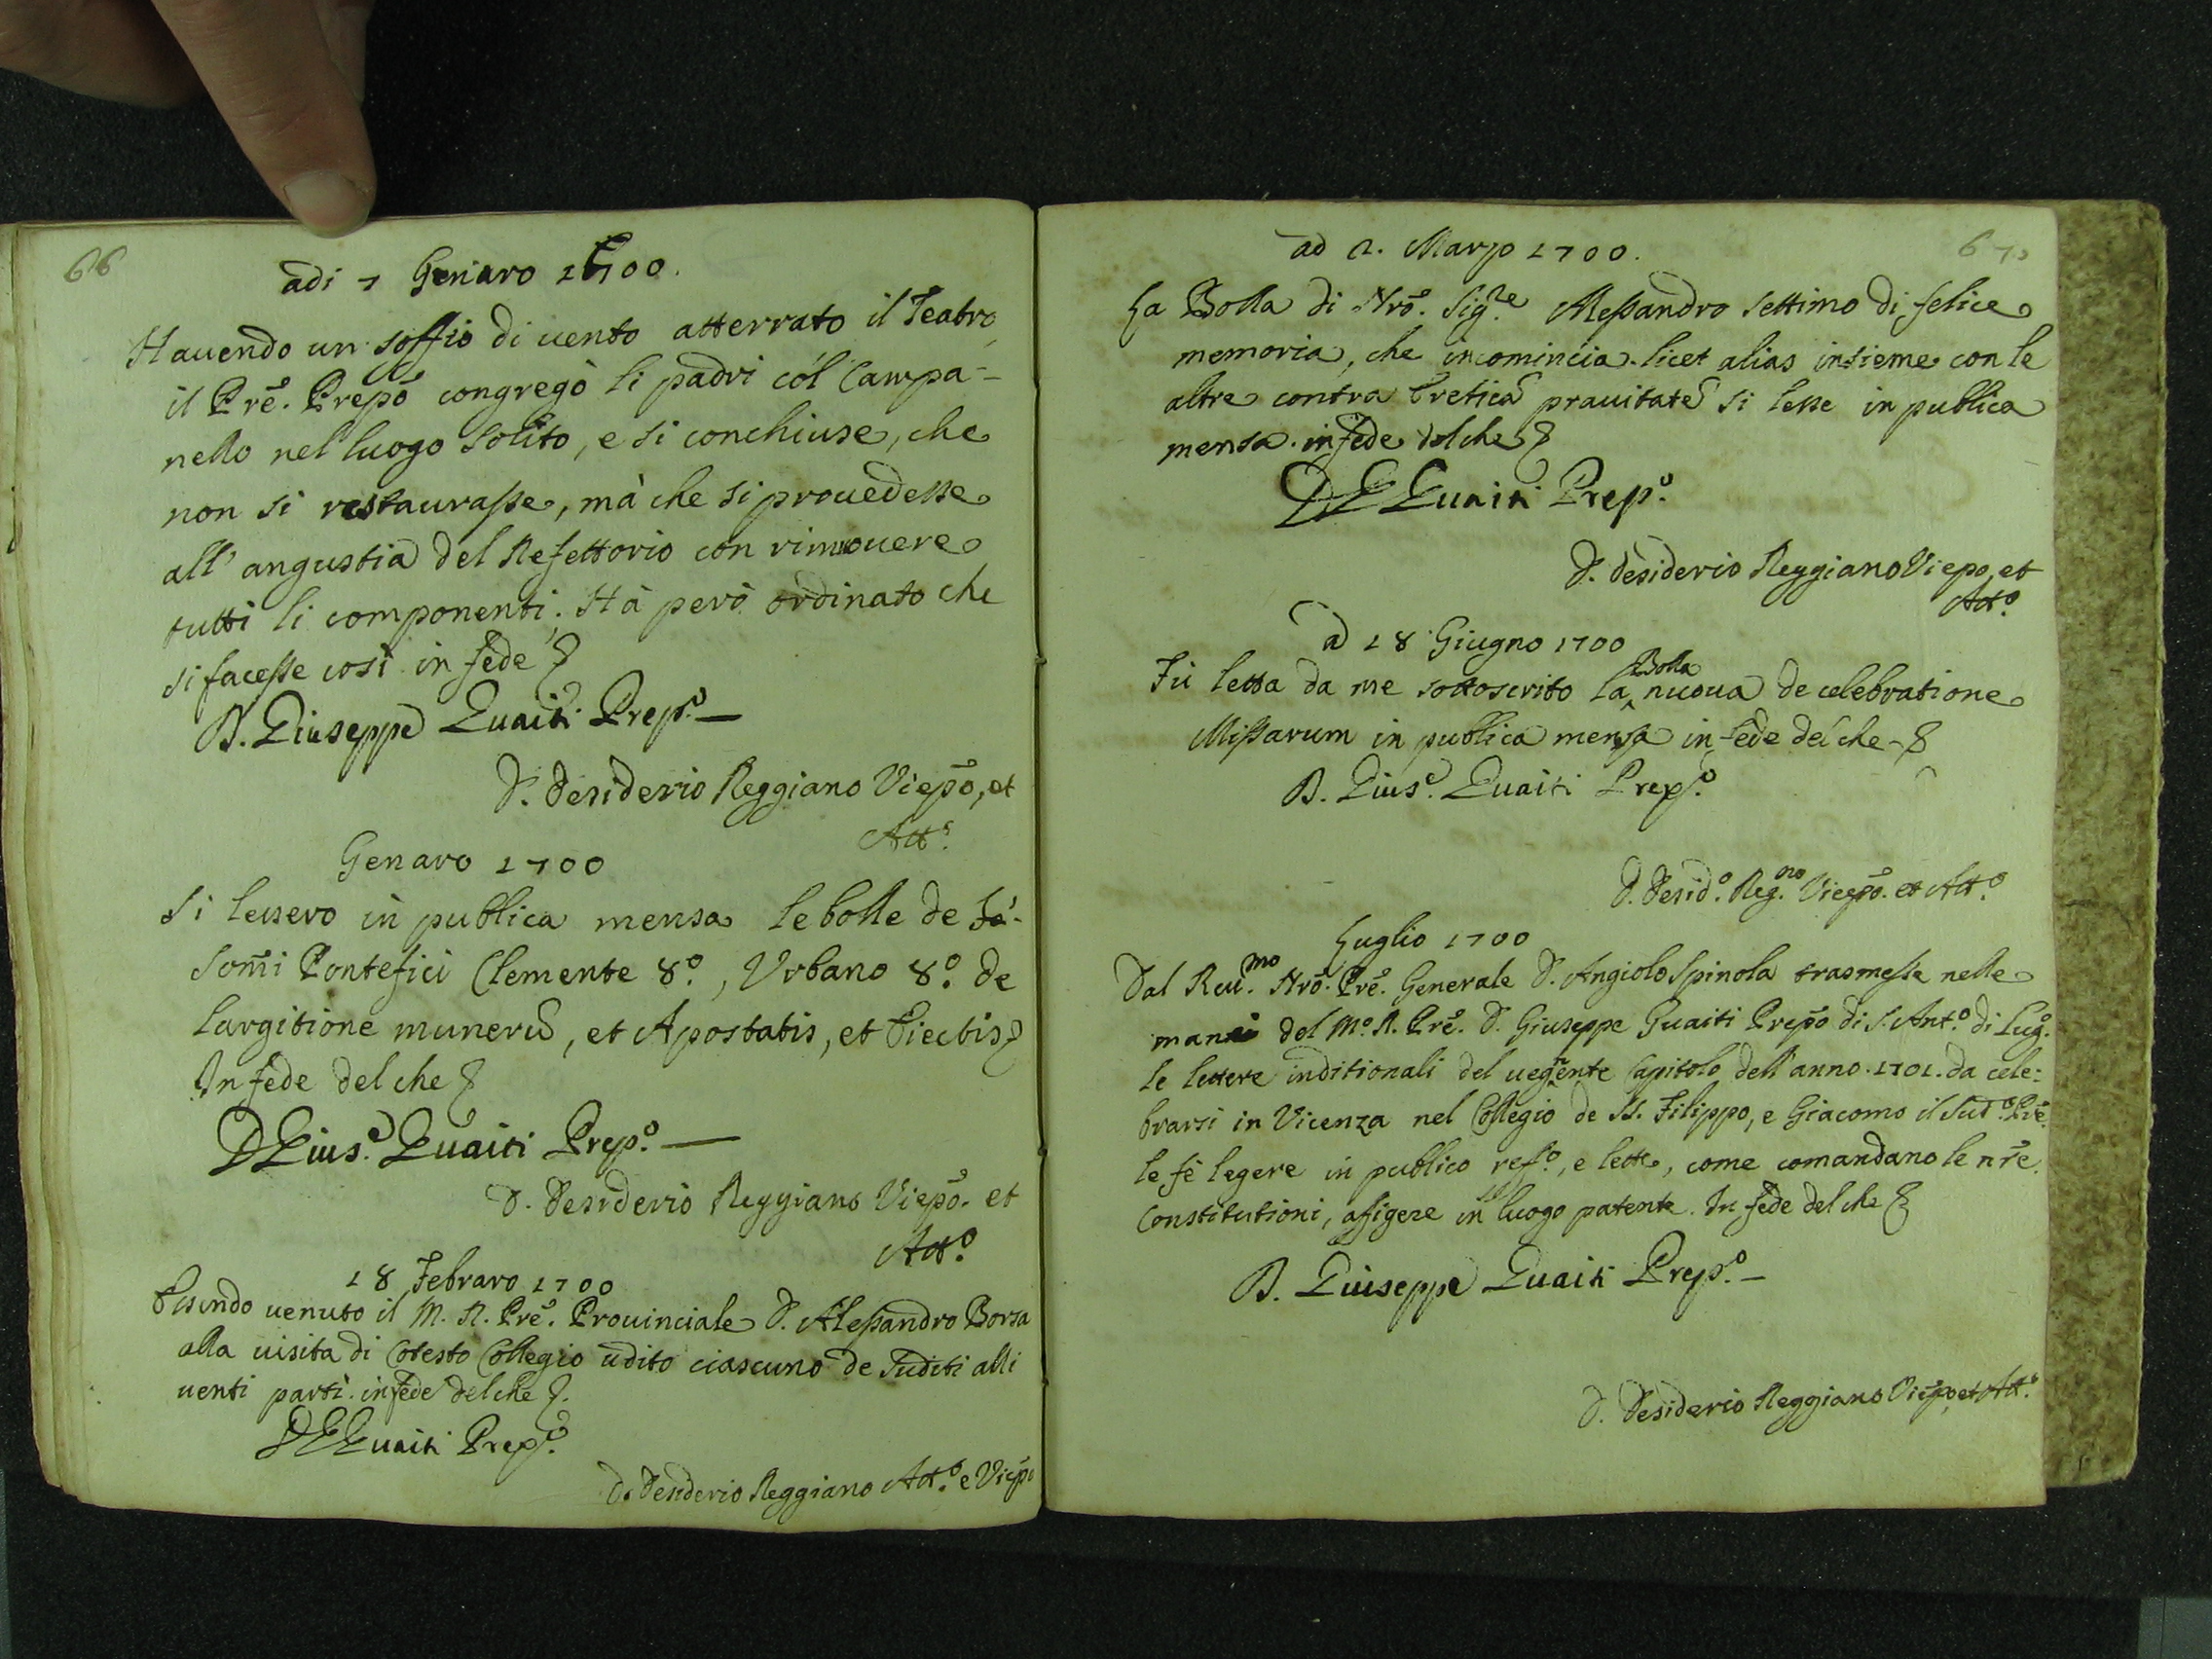 66
adi 7 Genaro 1700.
Hauendo un soffio di uento atterrato il Teatro,
il Prē. Prepō congregò li padri cól Campa-
nello nel luogo solito, e si conchiuse, che
non si restaurasse, mà che si prouedesse
all' angustia del Refettorio con rimouere
tutti li componenti. Hà però ordinato che
si facesse così in fede
D. Giuseppe Guaiti Prep.o —
D. Desiderio Reggiano Viepō, et
Att.o
Genaro 1700
Si lessero in publica mensa le bolle de
Som̄i Pontefici Clemente 8.o, Vrbano 8.o de
largitione munerū, et Apostatis, et Eiectis
In fede del che
D Gius.e Guaiti Prep.o —
D. Desiderio Reggiano Viepō. et
Att.o
18 Febraro 1700
Esendo uenuto il M. R. Prē. Prouinciale D. Alessandro Borsa
alla uisita di Cotesto Collegio udito ciascuno de Suditi alli
uenti partì. in fede del che
D G Guaiti Prep.o
D. Desiderio Reggiano Att.o e Viepō
67
ad 2. Marzo 1700.
La Bolla di Nrō. Sig.re Alessandro settimo di felice
memoria, che incomincia. licet alias insieme con le
altre contra Ereticā prauitatē si lesse in publica
mensa. in fede del che
D G Guaiti Prep.o
D. Desiderio Reggiano Viepo, et
Att.o
a 18 Giugno 1700
Fù letta da me sottoscrito la Bolla nuoua de celebratione
Missarum in publica mensa in fede del che
D. Gius.e Guaiti Prep.o
D. Desid.o Reg.no Viecpō. et Att.o
Luglio 1700
Dal Reu.mo Nrō. Prē. Generale D. Angiolo Spinola trasmesse nelle
mani del M.o R. Prē. D. Giuseppe Guaiti Prepō di S. Ant.o di Lug.o
le lettere inditionali del uegnente Capitolo dell' anno. 1701. da cele-
brarsi in Vicenza nel Collegio de SS. Filippo, e Giacomo il Sud.o Prē.
le fè legere in publico ref.o, e lette, come comandano le nrē.
Constitutioni, affigere in luogo patente. In fede del che
D. Giuseppe Guaiti Prep.o —
D. Desiderio Reggiano Viepō et Att.o